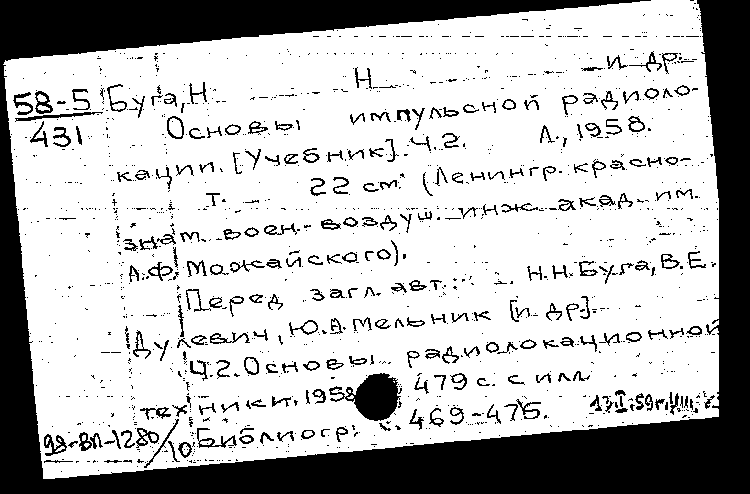 58-5 Буга, Н Н и др.
431 Основы импульсной радиоло-
кации. [Учебник]. Ч.2. Л., 1958.
т. 22 см. (Ленингр. красно-
знам. воен.-воздуш. инж. акад. им.
А.Ф. Можайского).
Перед загл. авт.: Н.Н. Буга, В.Е.
Дулевич, Ю.А. Мельник [и др].
Ч.2. Основы радиолокационной
техники. 1958. 479 с. с илл.
98-ВП-1280/10 Библиогр: с. 469-475.
13.I.59г.